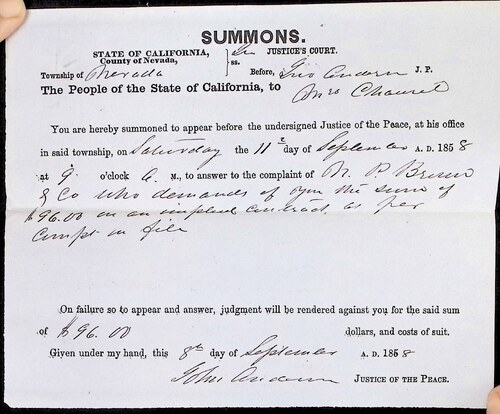 SUMMONS.
STATE OF CALIFORNIA, } In JUSTICE'S COURT.
County of Nevada, } ss.
Township of Nevada Before, Anderson J. P.
The People of the State of California, to Mrs
You are hereby summoned to appear before the undersigned Justice of the Peace, at his office
in said township, on Saturday the 11th day of September A. D. 1858
at 9 o'clock A. M., to answer to the complaint of N. P. Brown
& Co who demands of you the sum of
$96.00 on an implied contract as per
Compt on file
On failure so to appear and answer, judgment will be rendered against you for the said sum
of $96.00 dollars, and costs of suit.
Given under my hand, this 8th day of September A. D. 1858
John Anderson JUSTICE OF THE PEACE.